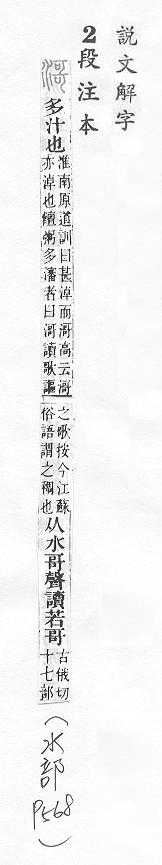 説文解字
2段注本
滒
多汁也
淮南原道訓曰甚淖而滒高云滒
亦淖也饘粥多瀋者曰滒讀歌謳
之歌按今江蘇
俗語謂之稠也
从水哥聲讀若哥
古俄切
十七部
(水部 P568)